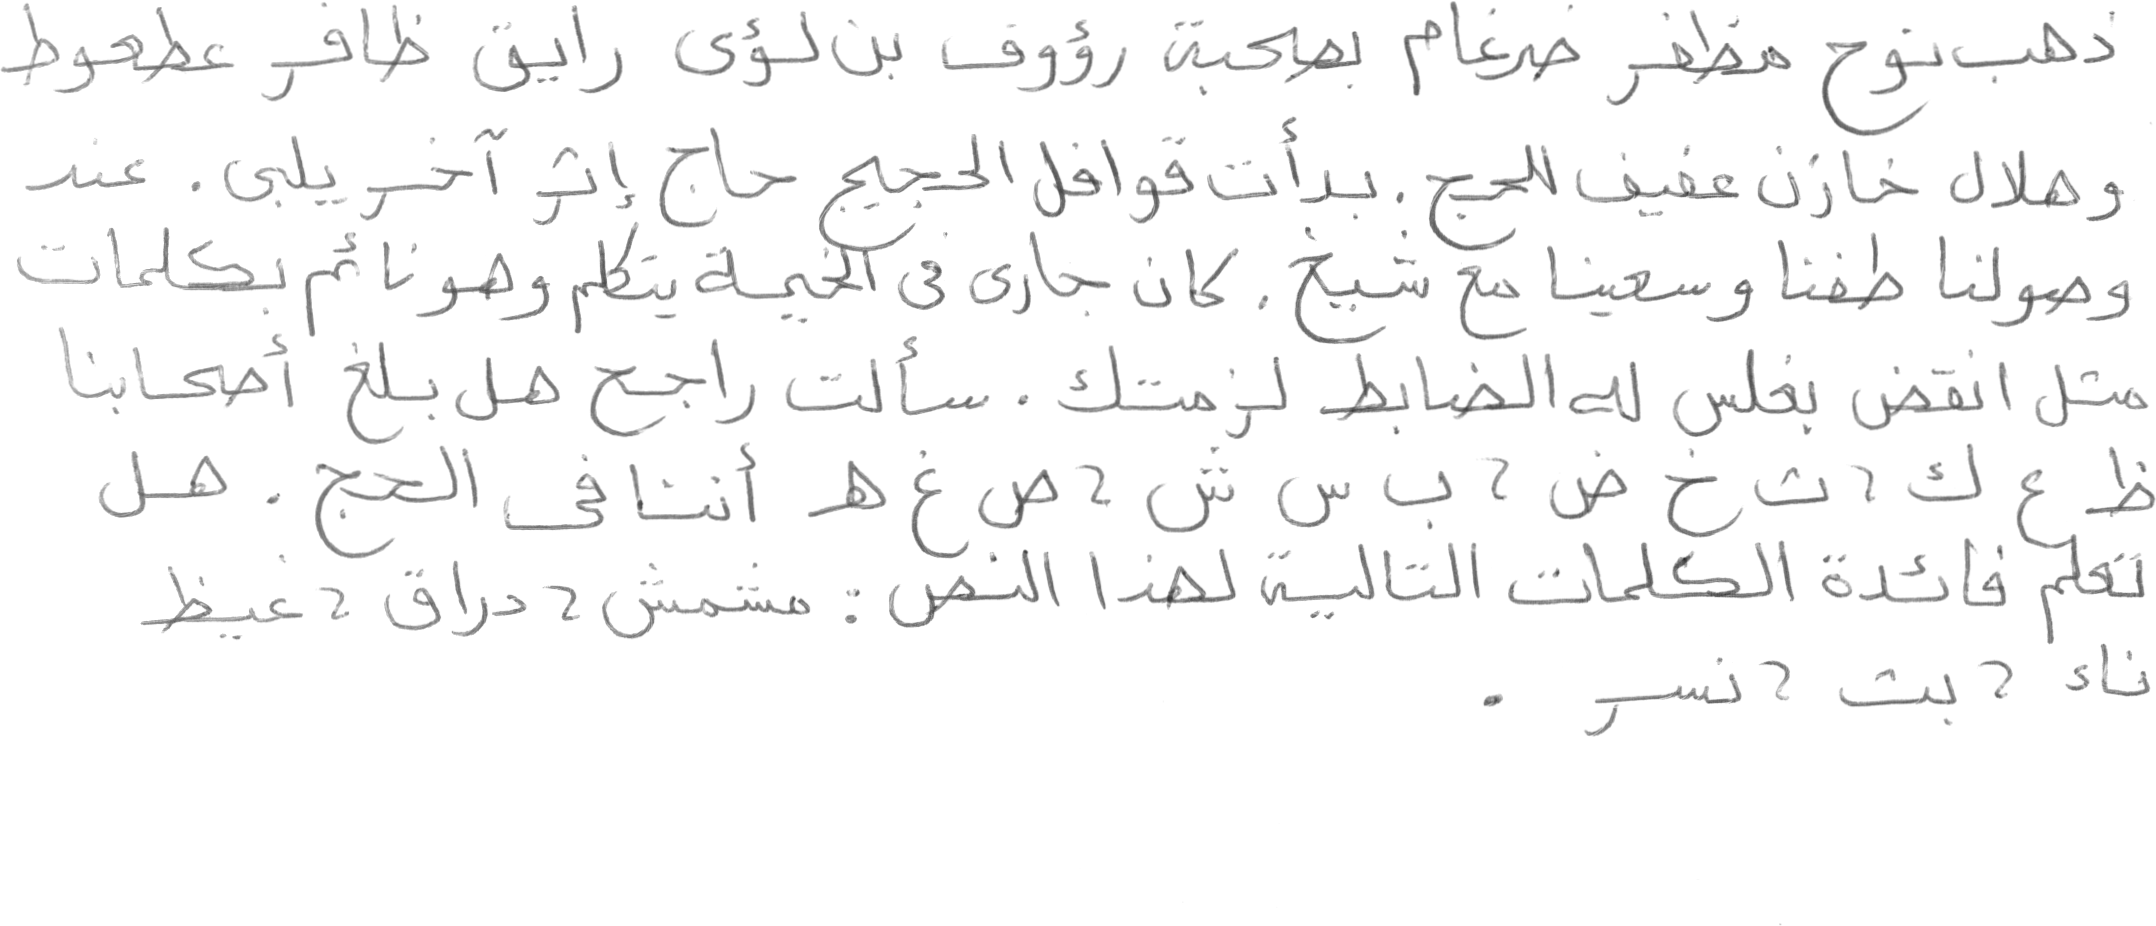 ذهب نوح مظفر ضرغام بصحبة رؤوف بن لؤى رايق ظافر عطعوط
وهلال خازن عفيف للحج . بدأت قوافل الحجيج حاج إثر آخر يلبى . عند
وصولنا طفنا وسعينا مع شيخ . كان جارى فى الخيمة يتكلم وهو نائم بكلمات
مثل انقض بغلس لله الضابط لزمتك . سألت راجح هل بلغ أصحابنا
ظ ع ك ، ث خ ض ، ب س ش ، ص غ هـ أننا فى الحج . هل
تعلم فائدة الكلمات التالية لهذا النص : مشمش ، دراق ، غيظ
ناء ، بث ، نسر .